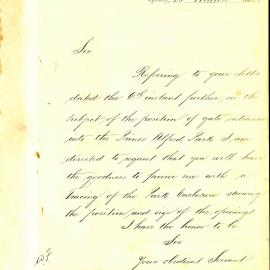 Sir
Refering to your letter
dated the 6th instant further on the
subject of the position of gate entrance
into the Prince Alfred Park I am
directed to request that you will have
the goodness to favor me with a
tracing of the Park Enclosure showing
the position and size of the openings
I have the honor to be
Sir
Your obedient Servant